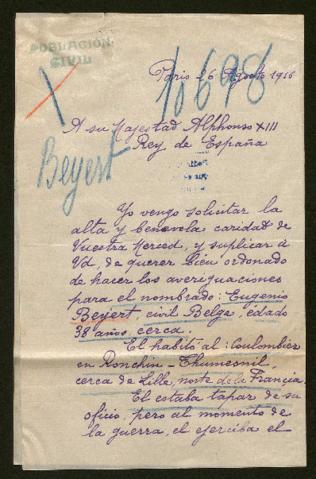 POBLACIÓN
CIVIL
Paris 26 Agosto 1916
10698
A su Majestad Alphonso XIII
Rey de España
Beyert
Yo vengo solicitar la
alta y benevola caridad de
Vuestra Merced, y suplicar à
Vd, de querer bien ordonado
de hacer los averiguaciones
para el nombrado: Eugenio
Beyert, civil Belge, édado
38 años, cerca.
El habitó al: Coulombier
en Ronchin-Thumesnil,
cerca de Lille, norte de la Francia.
El estaba tapar de su
oficio, pero al momento de
la guerra, el ejerciba el